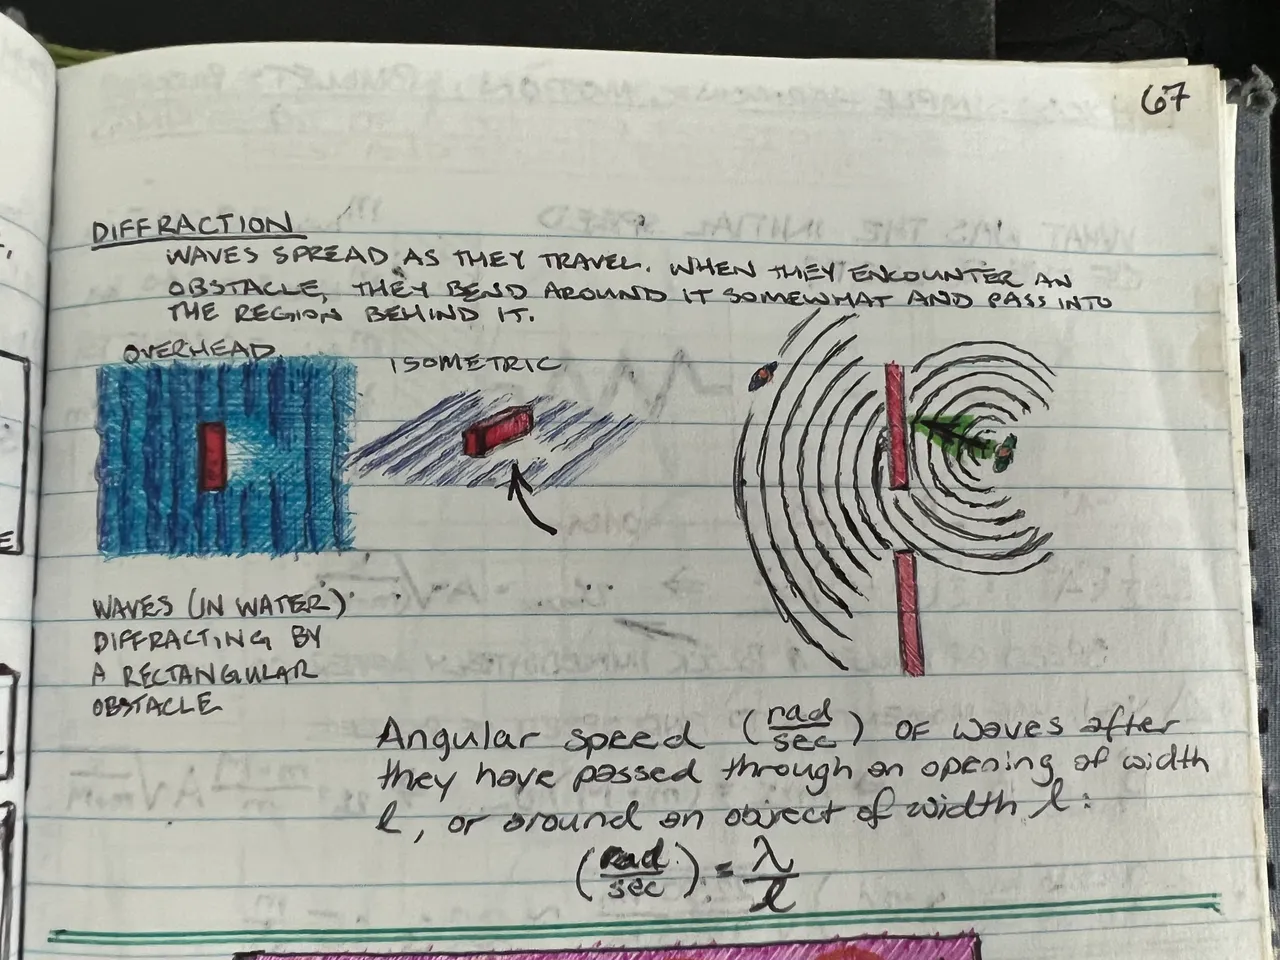 67
DIFFRACTION
WAVES SPREAD AS THEY TRAVEL. WHEN THEY ENCOUNTER AN
OBSTACLE, THEY BEND AROUND IT SOMEWHAT AND PASS INTO
THE REGION BEHIND IT.
OVERHEAD
ISOMETRIC
WAVES (IN WATER)
DIFFRACTING BY
A RECTANGULAR
OBSTACLE
Angular speed (rad/sec) OF waves after
they have passed through an opening of width
l, or around an object of width l:
(rad/sec) = λ/l